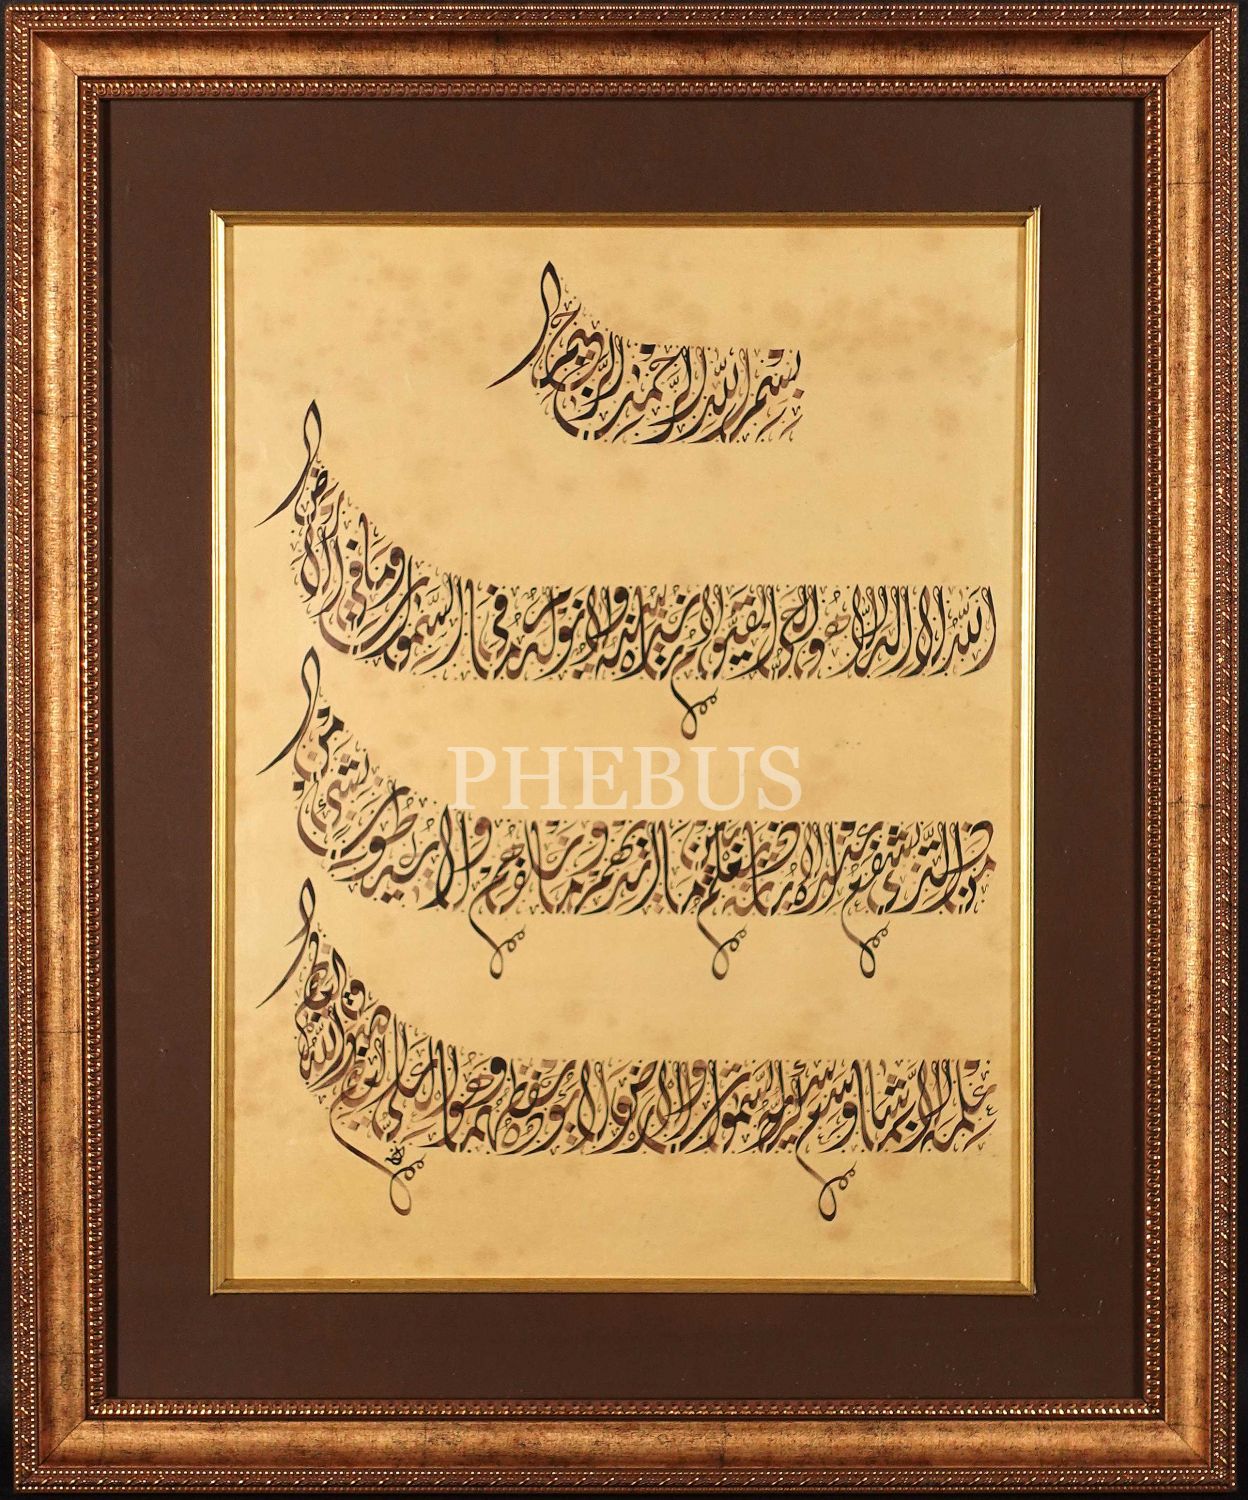 بِسْمِ اللهِ الرَّحْمٰنِ الرَّحِيمِ
اللهُ لَا إِلٰهَ إِلَّا هُوَ الْحَيُّ الْقَيُّومُ لَا تَأْخُذُهُ سِنَةٌ وَلَا نَوْمٌ لَهُ مَا فِي السَّمٰوَاتِ وَمَا فِي الْأَرْضِ
PHEBUS
مَنْ ذَا الَّذِي يَشْفَعُ عِنْدَهُ إِلَّا بِإِذْنِهِ يَعْلَمُ مَا بَيْنَ أَيْدِيهِمْ وَمَا خَلْفَهُمْ وَلَا يُحِيطُونَ بِشَيْءٍ مِنْ
عِلْمِهِ إِلَّا بِمَا شَاءَ وَسِعَ كُرْسِيُّهُ السَّمٰوَاتِ وَالْأَرْضَ وَلَا يَئُودُهُ حِفْظُهُمَا وَهُوَ الْعَلِيُّ الْعَظِيمُ